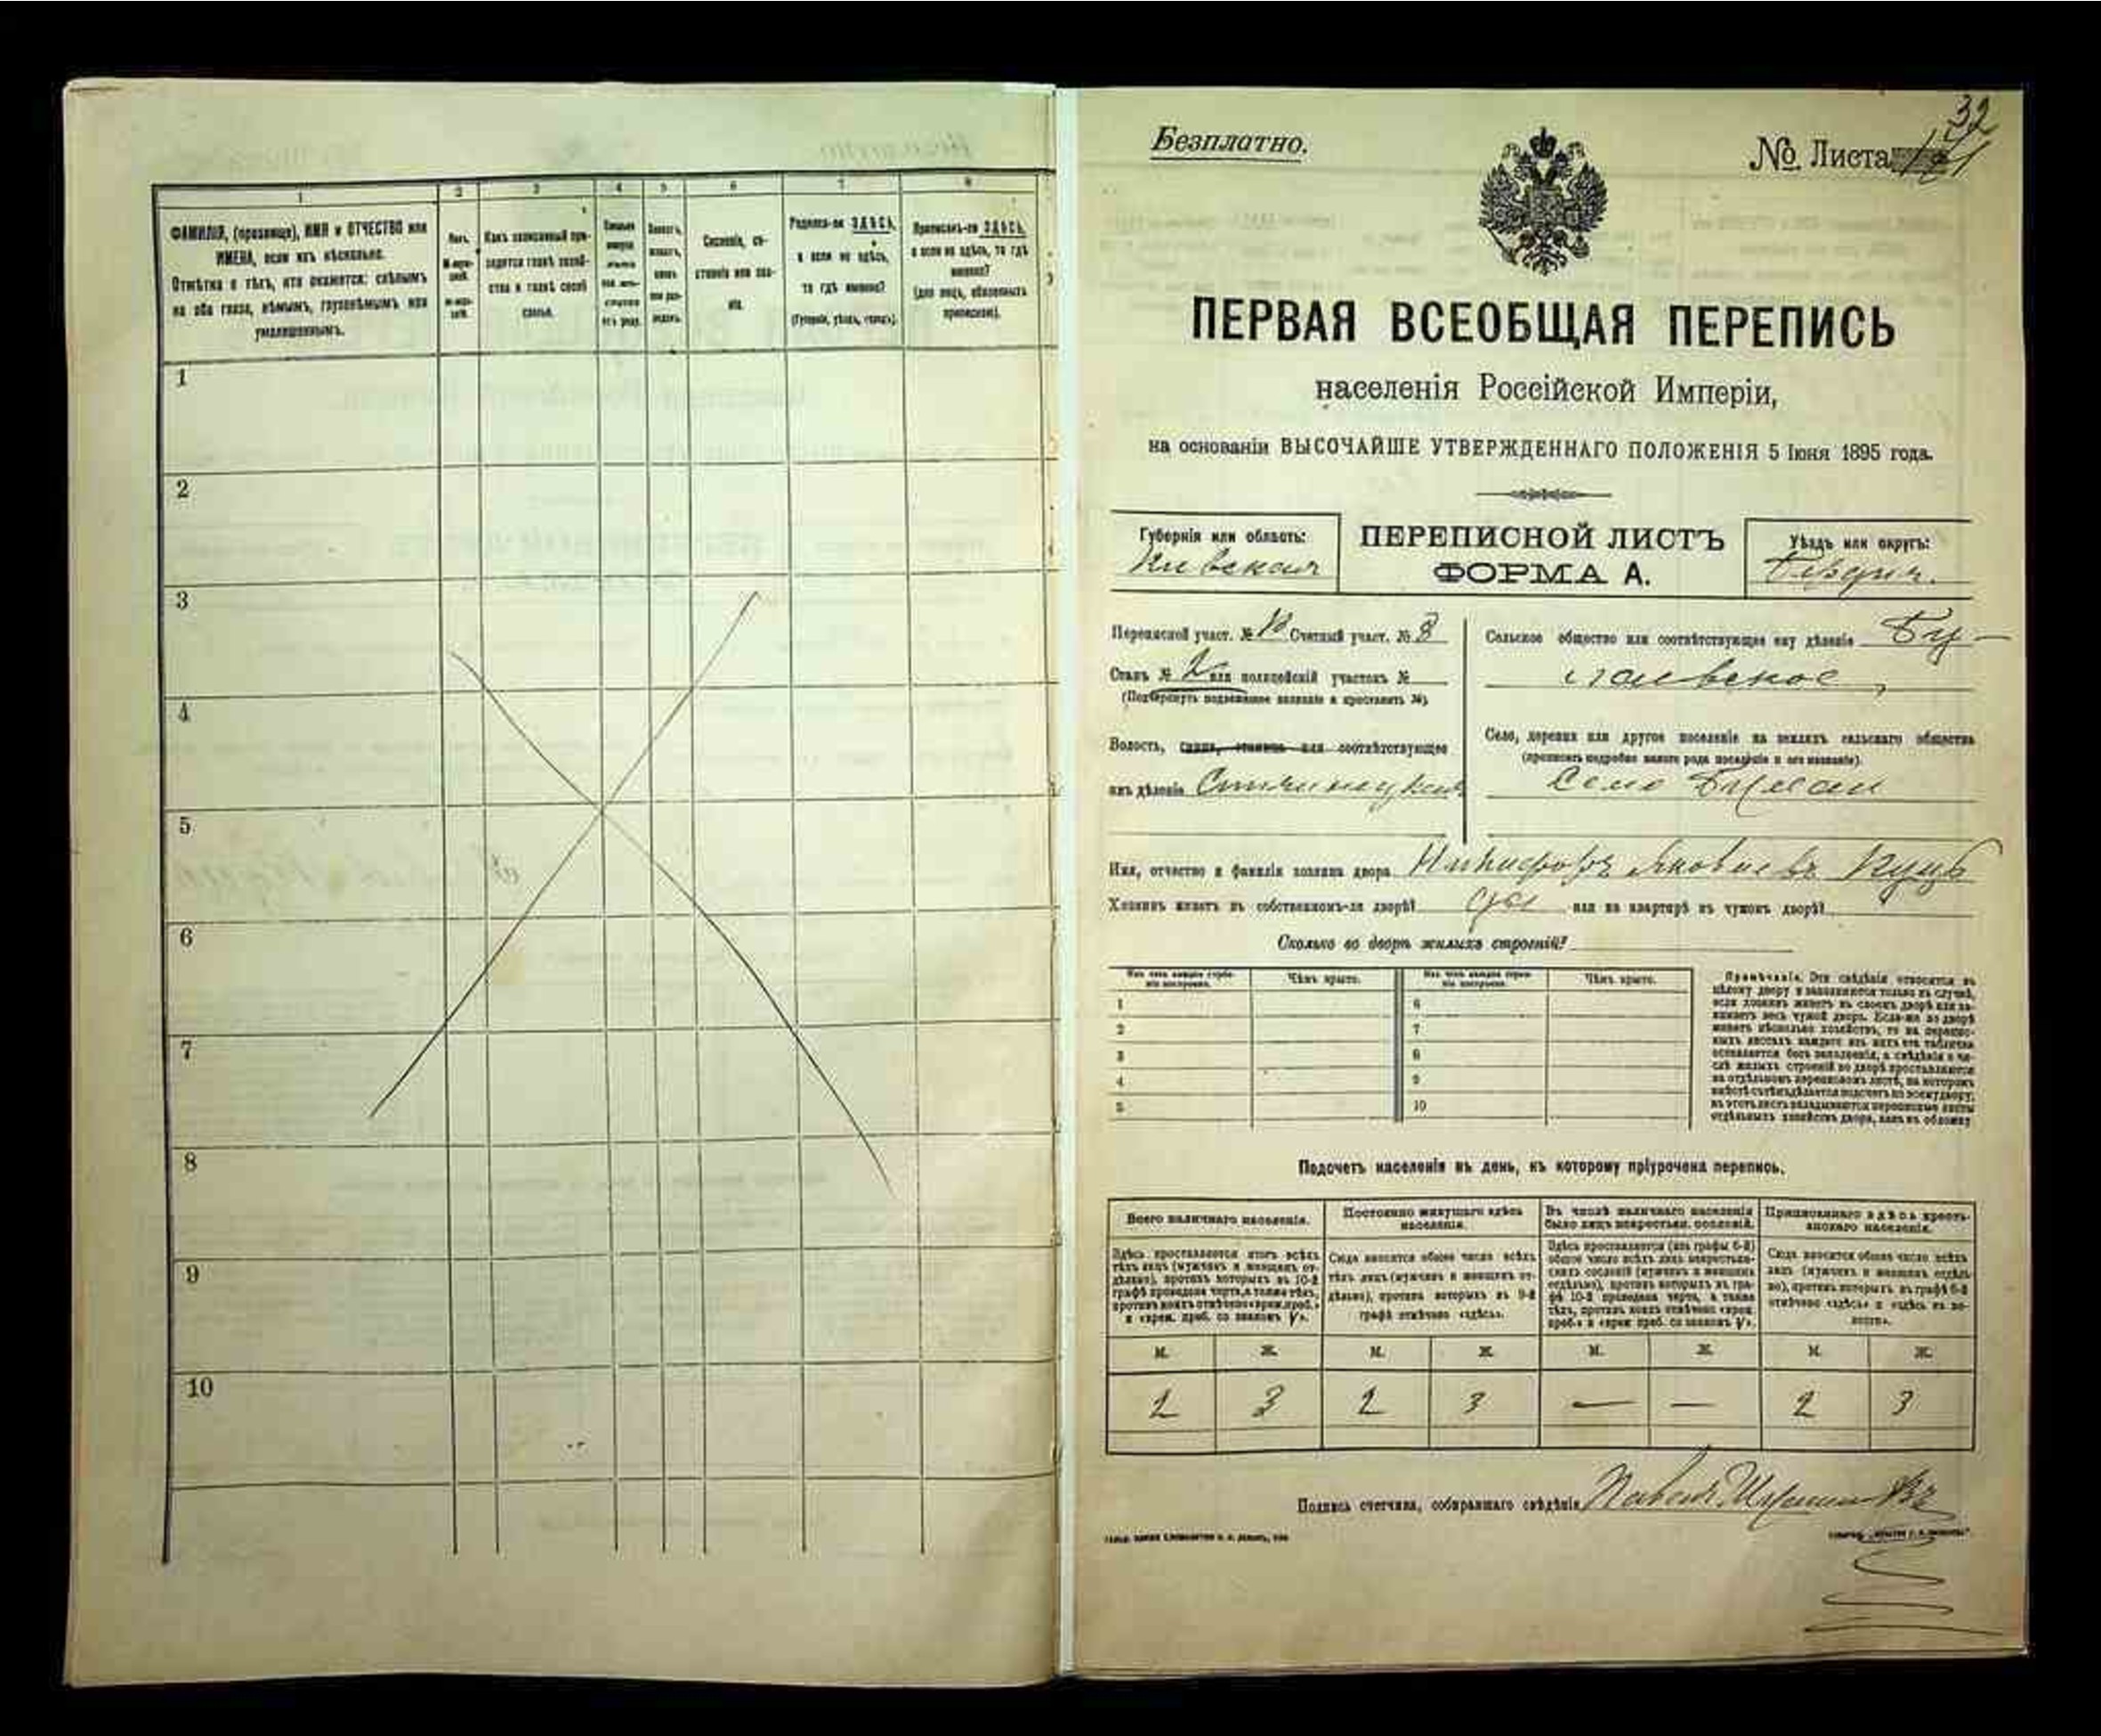 1
2
3
4
5
6
7
8
ФАМИЛІЯ, (прозвище), ИМЯ и ОТЧЕСТВО или
ИМЕНА, если ихъ нѣсколько.
Отмѣтка о тѣхъ, кто окажется: слѣпымъ
на оба глаза, нѣмымъ, глухонѣмымъ или
умалишеннымъ.
Полъ.
Какъ записанный при-
ходится главѣ хозяй-
ства и главѣ своей
семьи.
Сословіе, со-
стояніе или зва-
ніе.
Родился-ли ЗДѢСЬ,
а если не здѣсь,
то гдѣ именно?
(Губернія, уѣздъ, городъ).
Приписанъ-ли ЗДѢСЬ,
а если не здѣсь, то гдѣ
именно?
(для лицъ, обязанныхъ
припискою).
1
2
3
4
5
6
7
8
9
10
32
Безплатно.
№ Листа
ПЕРВАЯ ВСЕОБЩАЯ ПЕРЕПИСЬ
населенія Россійской Имперіи,
на основаніи ВЫСОЧАЙШЕ УТВЕРЖДЕННАГО ПОЛОЖЕНІЯ 5 Іюня 1895 года.
Губернія или область:
Кіевская
ПЕРЕПИСНОЙ ЛИСТЪ
ФОРМА А.
Уѣздъ или округъ:
Бердич.
Переписной участ. № Счетный участ. № 8
Станъ № 2 или полицейскій участокъ №
(Подчеркнуть подлежащее названіе и проставить №)
Волость, гмина, станица или соотвѣтствующее
имъ дѣленіе
Сельское общество или соотвѣтствующее ему дѣленіе
Село, деревня или другое поселеніе на земляхъ сельскаго общества
(прописать подробно какого рода поселеніе и его названіе).
Село
Имя, отчество и фамилія хозяина двора Никифоръ Яковлевъ Куцъ
Хозяинъ живетъ въ собственномъ-ли дворѣ? или на квартирѣ въ чужомъ дворѣ?
Сколько во дворѣ жилыхъ строеній?
Изъ чего каждое строе-
ніе построено.
Чѣмъ крыто.
Изъ чего каждое строе-
ніе построено.
Чѣмъ крыто.
1
2
3
4
5
6
7
8
9
10
Примѣчаніе. Эти свѣдѣнія относятся къ
цѣлому двору и заполняются только въ случаѣ,
если хозяинъ живетъ въ своемъ дворѣ или за-
нимаетъ весь чужой дворъ. Если-же во дворѣ
живетъ нѣсколько хозяйствъ, то на перепис-
ныхъ листахъ каждаго изъ нихъ эта табличка
оставляется безъ заполненія, а свѣдѣнія о чи-
слѣ жилыхъ строеній во дворѣ проставляются
на отдѣльномъ переписномъ листѣ, на которомъ
вмѣстѣ съ тѣмъ дѣлается подсчетъ по всему двору;
въ этотъ листъ вкладываются переписные листы
отдѣльныхъ хозяйствъ двора, какъ въ обложку
Подсчетъ населенія въ день, къ которому пріурочена перепись.
Всего наличнаго населенія.
Постоянно живущаго здѣсь
населенія.
Въ числѣ наличнаго населенія
было лицъ некрестьян. сословій.
Приписаннаго здѣсь кресть-
янскаго населенія.
Здѣсь проставляется итогъ всѣхъ
тѣхъ лицъ (мужчинъ и женщинъ от-
дѣльно), противъ которыхъ въ 10-й
графѣ проведена черта, а также тѣхъ,
противъ коихъ отмѣчено «врем. преб.»
и «врем. преб. со знакомъ V».
Сюда вносится общее число всѣхъ
тѣхъ лицъ (мужчинъ и женщинъ от-
дѣльно), противъ которыхъ въ 9-й
графѣ отмѣчено «здѣсь».
Здѣсь проставляется (изъ графы 6-й)
общее число всѣхъ лицъ некрестьян-
скихъ сословій (мужчинъ и женщинъ
отдѣльно), противъ которыхъ въ гра-
фѣ 10-й проведена черта, а также
тѣхъ, противъ коихъ отмѣчено «врем.
преб.» и «врем преб. со знакомъ V».
Сюда вносится общее число всѣхъ
лицъ (мужчинъ и женщинъ отдѣль-
но), противъ которыхъ въ графѣ 8-й
отмѣчено «здѣсь» и «здѣсь въ во-
лости».
М. Ж. М. Ж. М. Ж. М. Ж.
2 3 2 3 — — 2 3
Подпись счетчика, собиравшаго свѣдѣнія